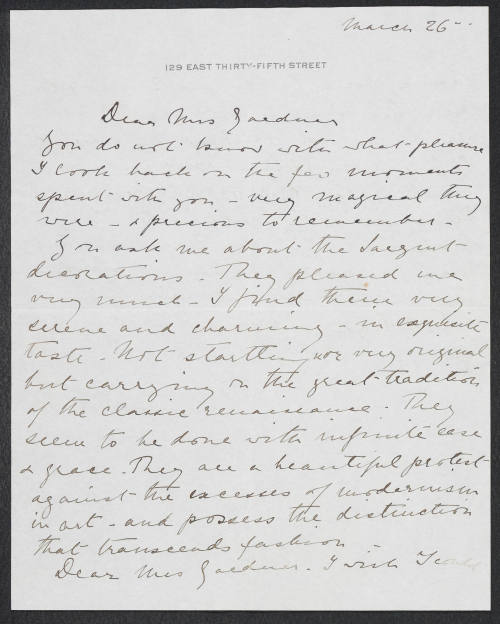 March 26
129 EAST THIRTY-FIFTH STREET
Dear Mrs Gardner
You do not know with what pleasure
I look back on the few moments
spent with you - very magical they
were - & precious to remember -
You ask me about the Sargent
decorations. They pleased me
very much - I find them very
serene and charming - in exquisite
taste. Not startling nor very original
but carrying on the great tradition
of the classic renaissance. They
seem to be done with infinite ease
& grace. They are a beautiful protest
against the excesses of modernism
in art - and possess the distinction
that transcends fashion -
Dear Mrs Gardner. I wish I could